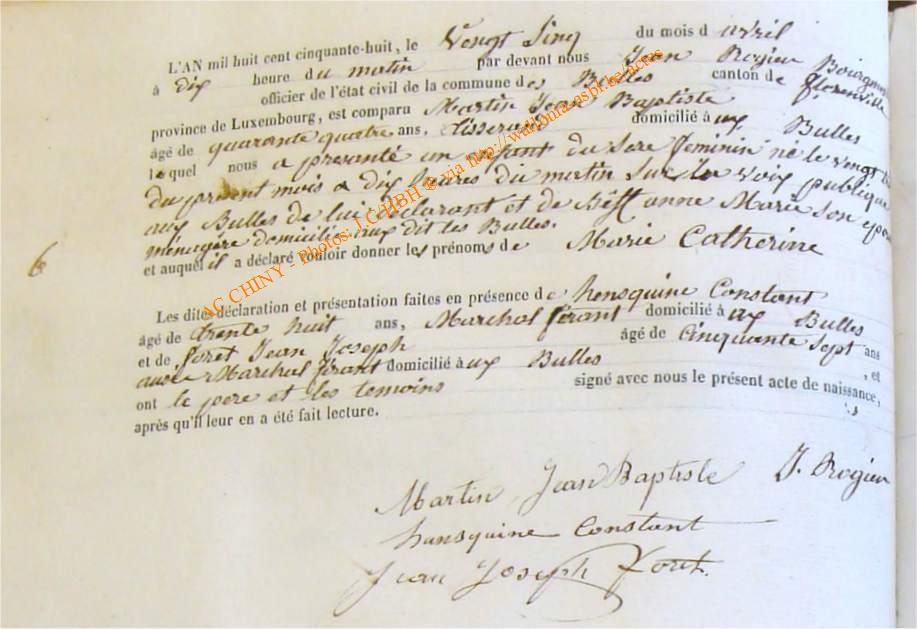 L'AN mil huit cent cinquante-huit, le Vengt Sinq du mois d avril
à dix heure du matin par devant nous Jean Rogier Bourgmes
officier de l'état civil de la commune des Bulles canton de florenville
province de Luxembourg, est comparu Martin Jean Baptiste
âgé de quarante quatre ans, tisserand domicilié à ux Bulles
lequel nous a presenté un enfant du sexe feminin né le vengt
du présent mois a dix heures du matin sur la voix publique
aux Bulles de lui déclarant et de anne Marie son epou
ménagère domicilié aux dit les Bulles.
et auquel il a déclaré vouloir donner les prénoms de Marie Catherine
6
Les dites déclaration et présentation faites en présence de hensquine Constant
âgé de trente huit ans, Marchal ferant domicilié à ux Bulles
et de foret Jean Joseph âgé de Cinquante Sept ans
aussi Marchal ferant domicilié à ux Bulles , et
ont le pere et les temoins signé avec nous le présent acte de naissance,
après qu'il leur en a été fait lecture.
Martin Jean Baptiste J. Rogier
hansquine Constant
Jean Joseph Foret.
AC CHINY - Photos: J.C/HBH © via http://wallonia-asbl.be/actes